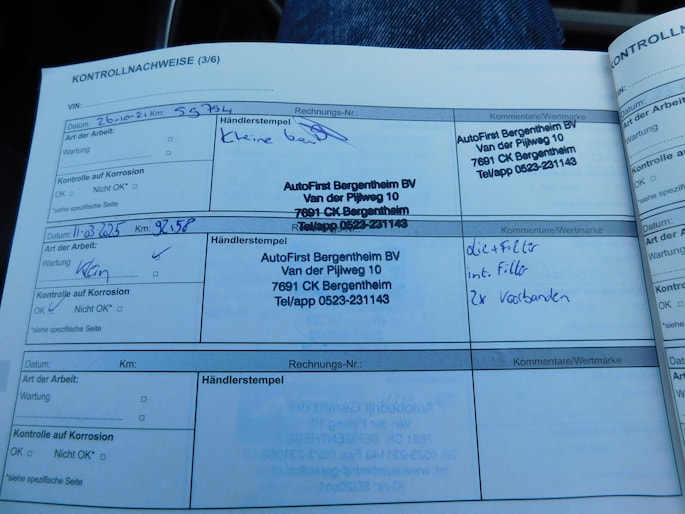 KONTROLLNACHWEISE (3/6)
VIN:
Datum: 26-10-21 Km: 59794 Rechnungs-Nr.: Kommentare/Wertmarke
Art der Arbeit:
Wartung
Kontrolle auf Korrosion
OK Nicht OK*
*siehe spezifische Seite
Händlerstempel
Kleine beurt
AutoFirst Bergentheim BV
Van der Pijlweg 10
7691 CK Bergentheim
Tel/app 0523-231143
AutoFirst Bergentheim BV
Van der Pijlweg 10
7691 CK Bergentheim
Tel/app 0523-231143
Datum: 11-03-2025 Km: 92.58 Kommentare/Wertmarke
Art der Arbeit:
Wartung
Klein
Kontrolle auf Korrosion
OK Nicht OK*
*siehe spezifische Seite
Händlerstempel
AutoFirst Bergentheim BV
Van der Pijlweg 10
7691 CK Bergentheim
Tel/app 0523-231143
olie + Filter
int. Filter
2x Voorbanden
Datum: Km: Rechnungs-Nr.: Kommentare/Wertmarke
Art der Arbeit:
Wartung
Kontrolle auf Korrosion
OK Nicht OK*
*siehe spezifische Seite
Händlerstempel
KONTROLL
VIN:
Datum:
Art der Arbe
Wartung
Kontrolle a
OK
*siehe spezifi
Datum:
Art der A
Wartung
Kontroll
OK
*siehe s